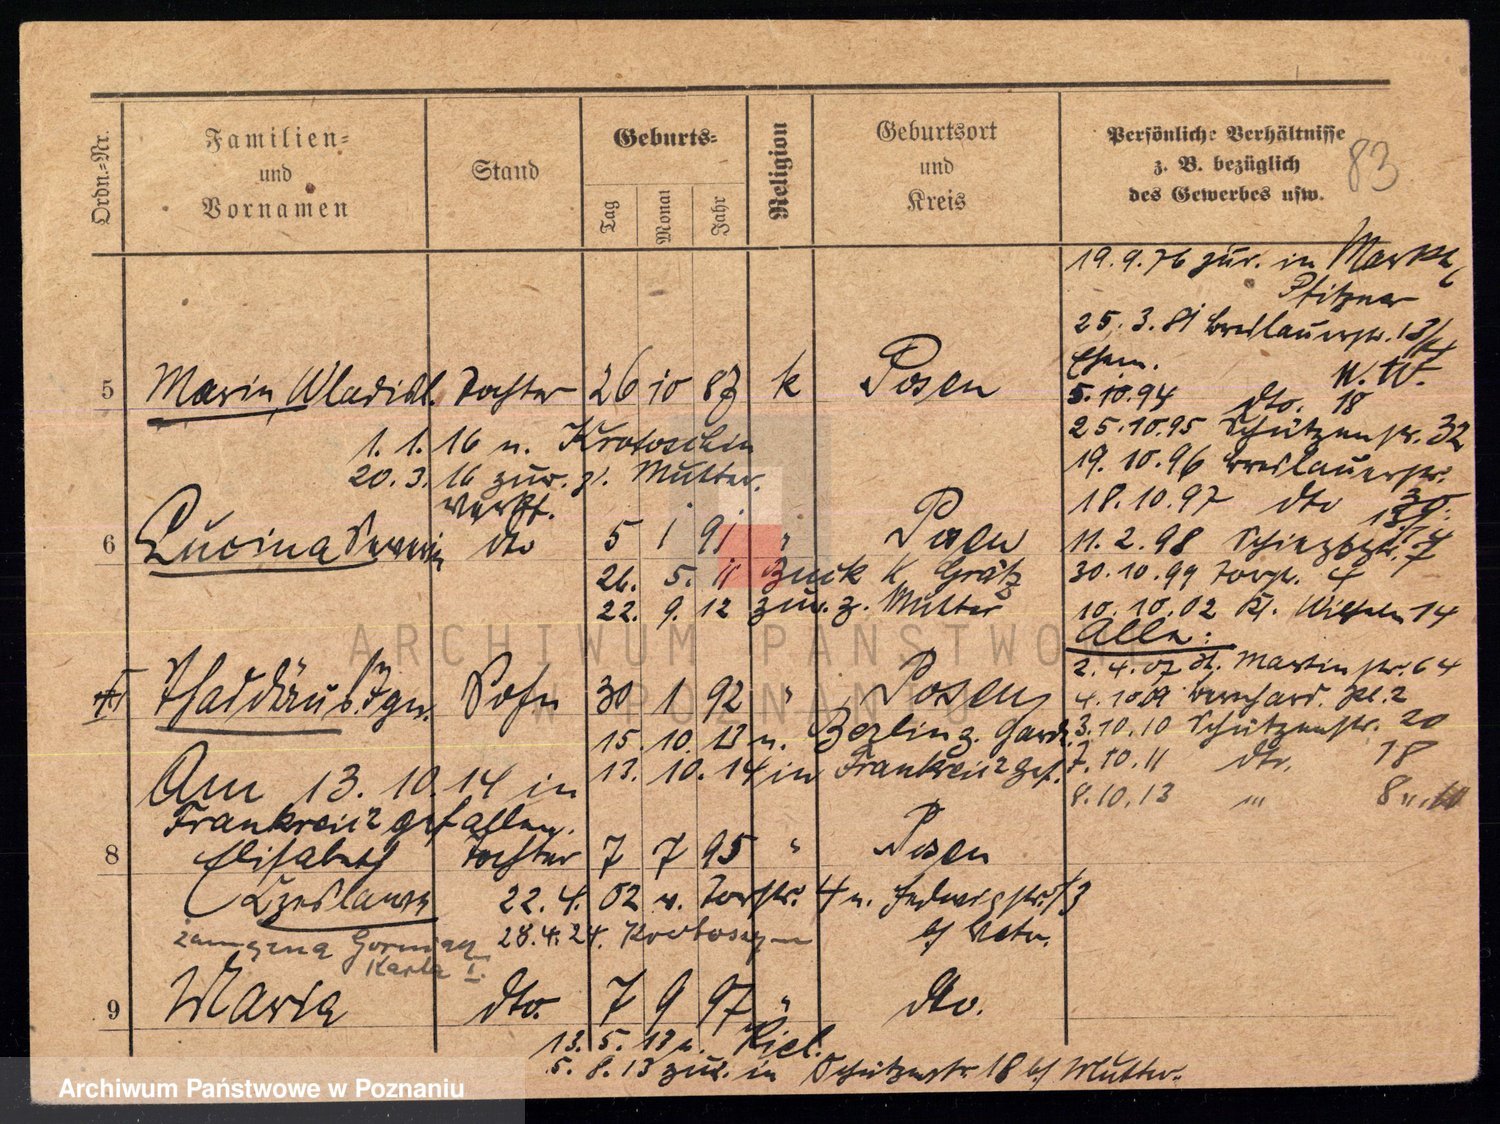 Ordn.-Nr.
Familien-
und
Vornamen
Stand
Geburts-
Tag
Monat
Jahr
Religion
Geburtsort
und
Kreis
Persönliche Verhältnisse
z. B. bezüglich
des Gewerbes usw.
83
19.9.76 zur. in
Pfitzner
25.3.81 Breslauerstr. 13/14
Ehem. W. W.
5.10.94 dto. 18
25.10.95 Schützenstr. 32
19.10.96 Breslauerstr.
18.10.97 dto
11.2.98
30.10.99 4
10.10.02 Kl. 14
Alle:
2.4.07 St. Martinstr. 64
4.10.09 Bernhard. Pl. 2
3.10.10 Schützenstr. 20
7.10.11 dto. 18
8.10.13 " 8
5 Maria, Wladisl. Tochter 26 10 87 k Posen
1.1.16 n. Krotoschin
20.3.16 zur. z. Mutter.
verzt.
6 Lucina Severin dto 5 1 91 " Posen
26. 5. 11 Buck K. Grätz
22. 9. 12 zur. z. Mutter
Thaddäus Ign. Sohn 30 1 92 " Posen
15. 10. 13 n. Berlin z. Garde.
13. 10. 14 in Frankreich gef.
Am 13.10.14 in
Frankreich gefallen.
8 Elisabeth Tochter 7 7 95 " Posen
Czeslawa 22.4.02 v. Torstr. 4 n. Hedwigstr. 13
b/ Vater.
zamężna Gorniak 28.4.24. Krotoszyn
Karla I.
9 Maria dto. 7 9 97 " dto.
13.5.13 n. Kiel.
5.8.13 zur. in Schützenstr. 18 b/ Mutter.
ARCHIWUM PAŃSTWOWE
W POZNANIU
Archiwum Państwowe w Poznaniu